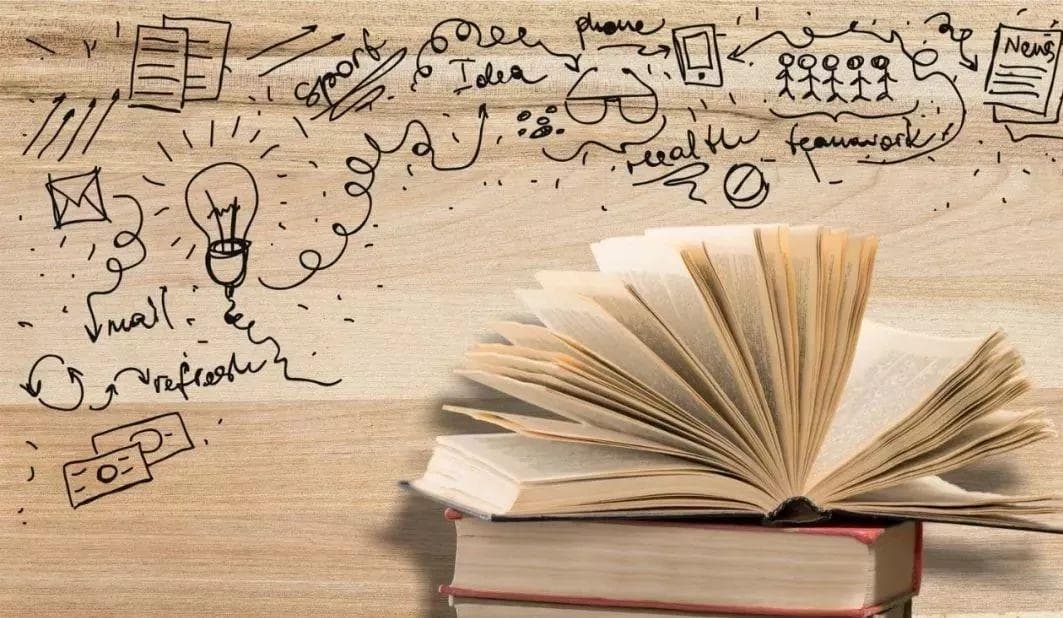 phone
News
Sport
Idea
health
teamwork
mail
refresh